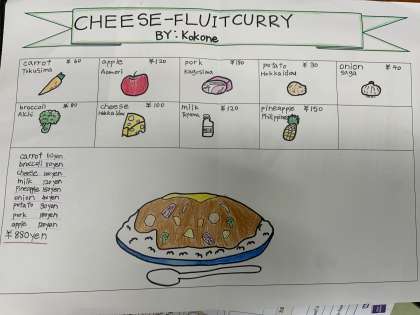 CHEESE-FLUITCURRY
BY: Kokone
carrot ¥60
Tokusima
apple ¥120
Aomori
pork ¥180
Kagosima
potato ¥30
Hokkaidou
onion ¥40
Saga
broccoli ¥80
Aichi
cheese ¥100
Hokkaidou
milk ¥120
pineapple ¥150
Philippine
carrot 60yen
broccoli 80yen
cheese 100yen
milk 120yen
pineapple 150yen
onion 40yen
potato 30yen
pork 180yen
apple 120yen
¥880yen